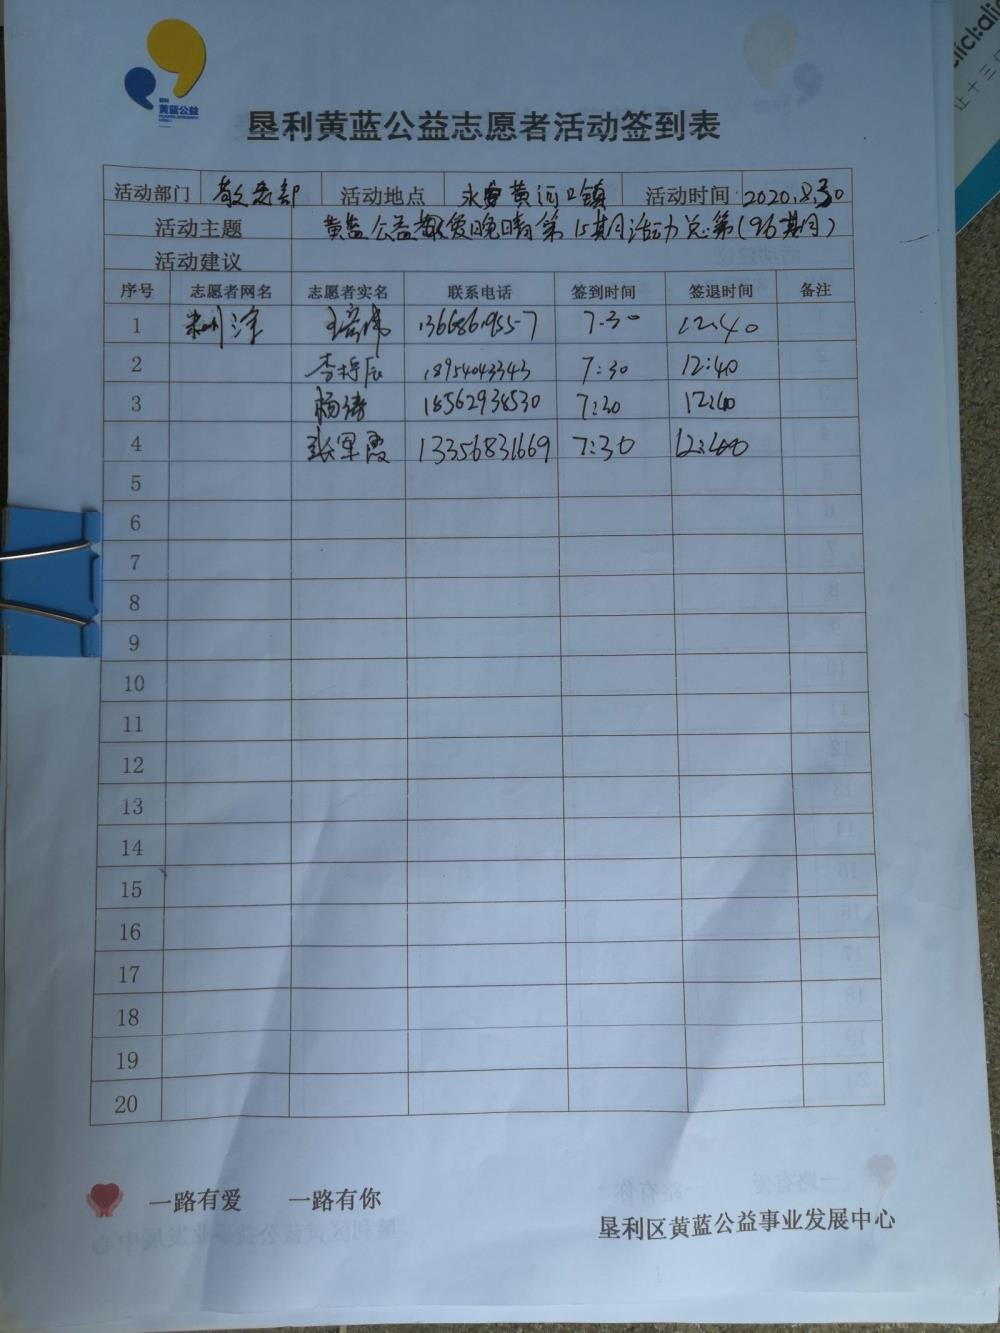 垦利
黄蓝公益
垦利黄蓝公益志愿者活动签到表
活动部门 敬老部 活动地点 永安黄河口镇 活动时间 2020.8.30
活动主题 黄蓝公益敬爱晚晴第15期月活动总第(96期月)
活动建议
序号 志愿者网名 志愿者实名 联系电话 签到时间 签退时间 备注
1 7:30 12:40
2 李将辰 18954043343 7:30 12:40
3 杨倩 18562938530 7:30 12:40
4 张军霞 13356831669 7:30 12:40
5
6
7
8
9
10
11
12
13
14
15
16
17
18
19
20
一路有爱 一路有你
垦利区黄蓝公益事业发展中心